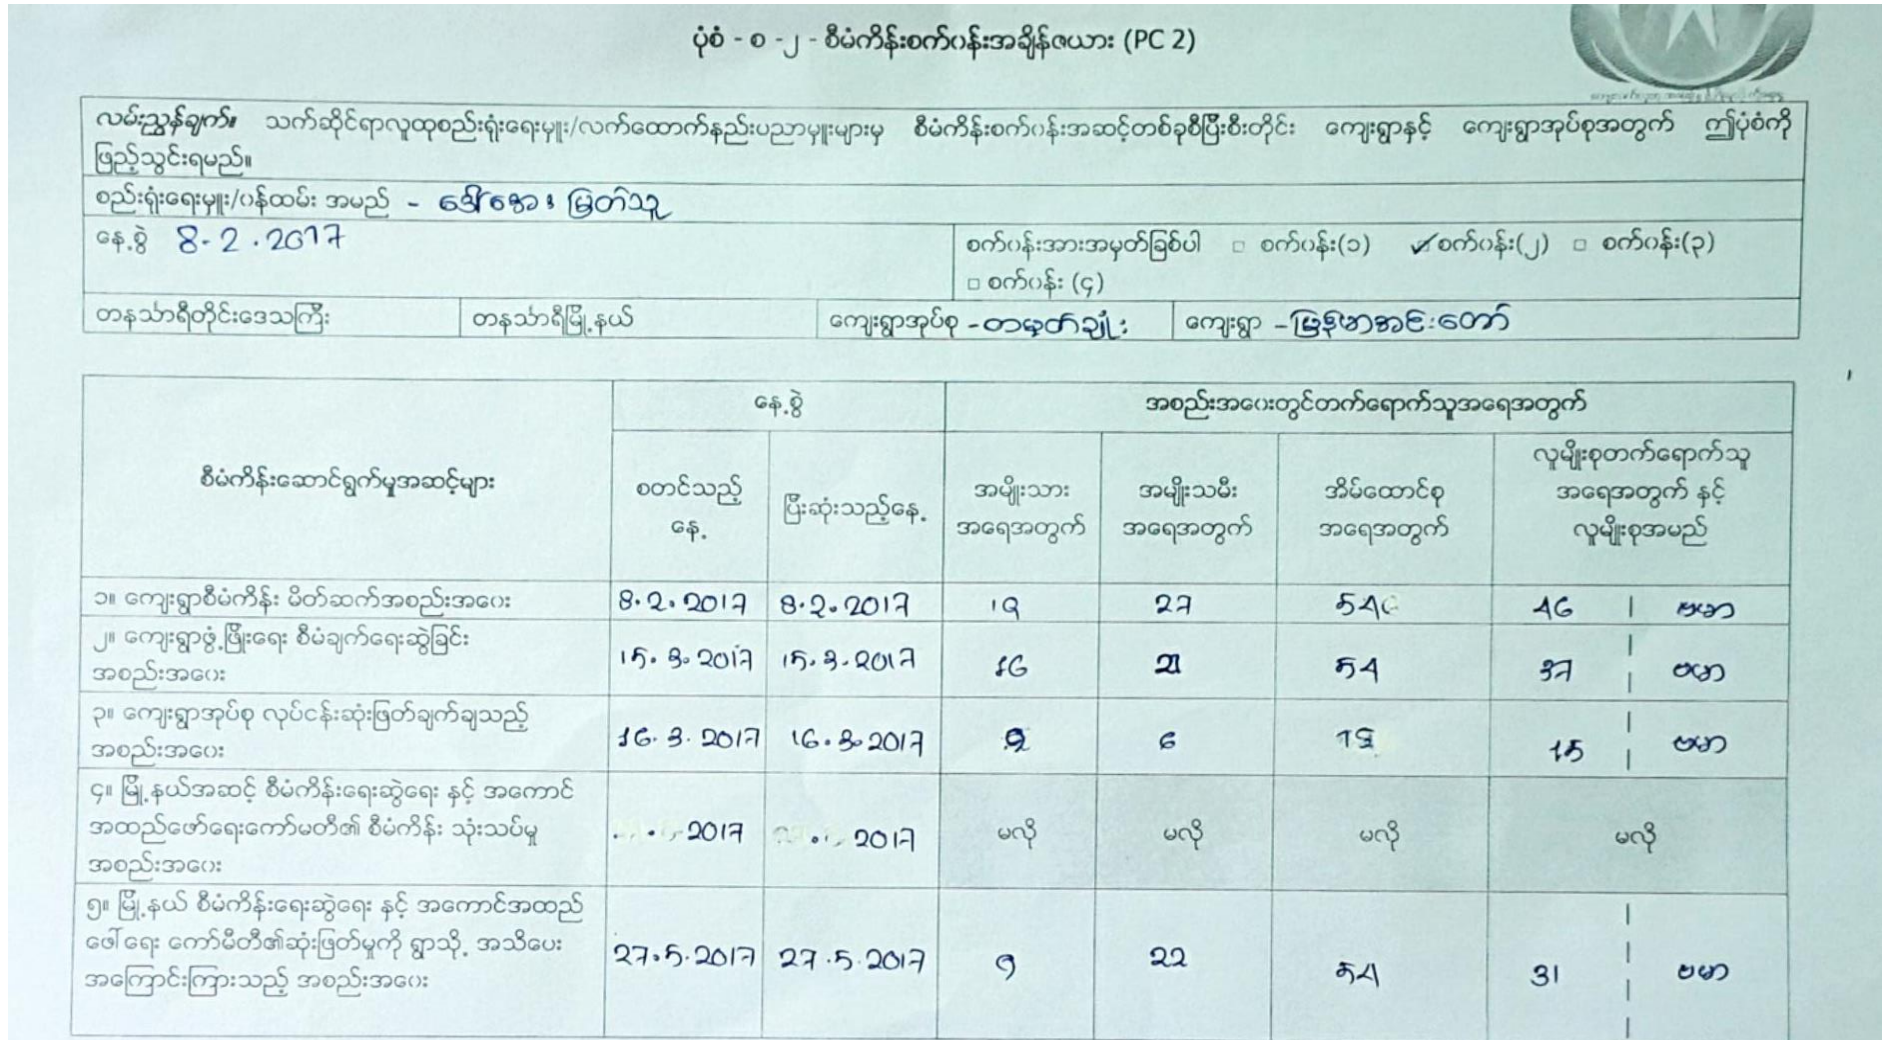 ပုံစံ - စ -၂ - စီမံကိန်းစက်ဝန်းအချိန်ဇယား (PC 2)
လမ်းညွှန်ချက်။ သက်ဆိုင်ရာလူထုစည်းရုံးရေးမှူး/လက်ထောက်နည်းပညာမှူးများမှ စီမံကိန်းစက်ဝန်းအဆင့်တစ်ခုစီပြီးစီးတိုင်း ကျေးရွာနှင့် ကျေးရွာအုပ်စုအတွက် ဤပုံစံကို
ဖြည့်သွင်းရမည်။
စည်းရုံးရေးမှူး/ဝန်ထမ်း အမည် - ဒေါ်အေးမြတ်သူ
နေ့စွဲ 8.2.2017 စက်ဝန်းအားအမှတ်ခြစ်ပါ □ စက်ဝန်း(၁) ✓စက်ဝန်း(၂) □ စက်ဝန်း(၃)
□ စက်ဝန်း (၄)
တနင်္သာရီတိုင်းဒေသကြီး တနင်္သာရီမြို့နယ် ကျေးရွာအုပ်စု - ကျေးရွာ - မြန်မာအင်းတော်
နေ့စွဲ အစည်းအဝေးတွင်တက်ရောက်သူအရေအတွက်
စီမံကိန်းဆောင်ရွက်မှုအဆင့်များ
စတင်သည့်
နေ့
ပြီးဆုံးသည့်နေ့
အမျိုးသား
အရေအတွက်
အမျိုးသမီး
အရေအတွက်
အိမ်ထောင်စု
အရေအတွက်
လူမျိုးစုတက်ရောက်သူ
အရေအတွက် နှင့်
လူမျိုးစုအမည်
၁။ ကျေးရွာစီမံကိန်း မိတ်ဆက်အစည်းအဝေး 8.2.2017 8.2.2017 19 27 54 46 | ဗမာ
၂။ ကျေးရွာဖွံ့ဖြိုးရေး စီမံချက်ရေးဆွဲခြင်း
အစည်းအဝေး 15.3.2017 15.3.2017 16 21 54 37 | ဗမာ
၃။ ကျေးရွာအုပ်စု လုပ်ငန်းဆုံးဖြတ်ချက်ချသည့်
အစည်းအဝေး 16.3.2017 16.3.2017 9 6 15 | ဗမာ
၄။ မြို့နယ်အဆင့် စီမံကိန်းရေးဆွဲရေး နှင့် အကောင်
အထည်ဖော်ရေးကော်မတီ၏ စီမံကိန်း သုံးသပ်မှု
အစည်းအဝေး 2017 2017 မလို မလို မလို မလို
၅။ မြို့နယ် စီမံကိန်းရေးဆွဲရေး နှင့် အကောင်အထည်
ဖေါ်ရေး ကော်မီတီ၏ဆုံးဖြတ်မှုကို ရွာသို့ အသိပေး
အကြောင်းကြားသည့် အစည်းအဝေး 27.5.2017 27.5.2017 9 22 54 31 | ဗမာ